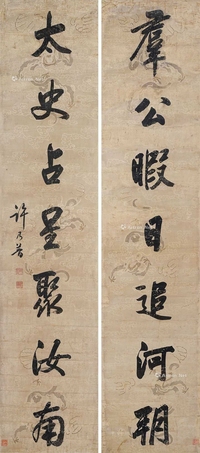 羣公暇日追河朔
太史占星聚汝南
許乃普